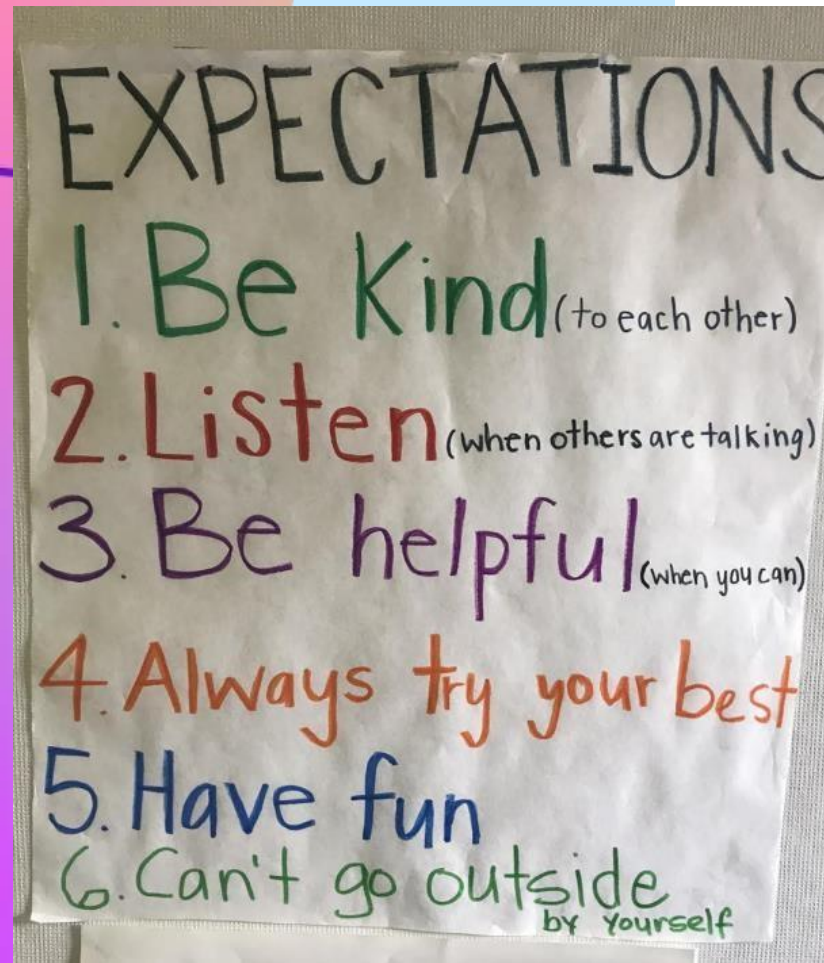 EXPECTATIONS
1. Be Kind (to each other)
2. Listen (when others are talking)
3. Be helpful (when you can)
4. Always try your best
5. Have fun
6. Can't go outside
by yourself